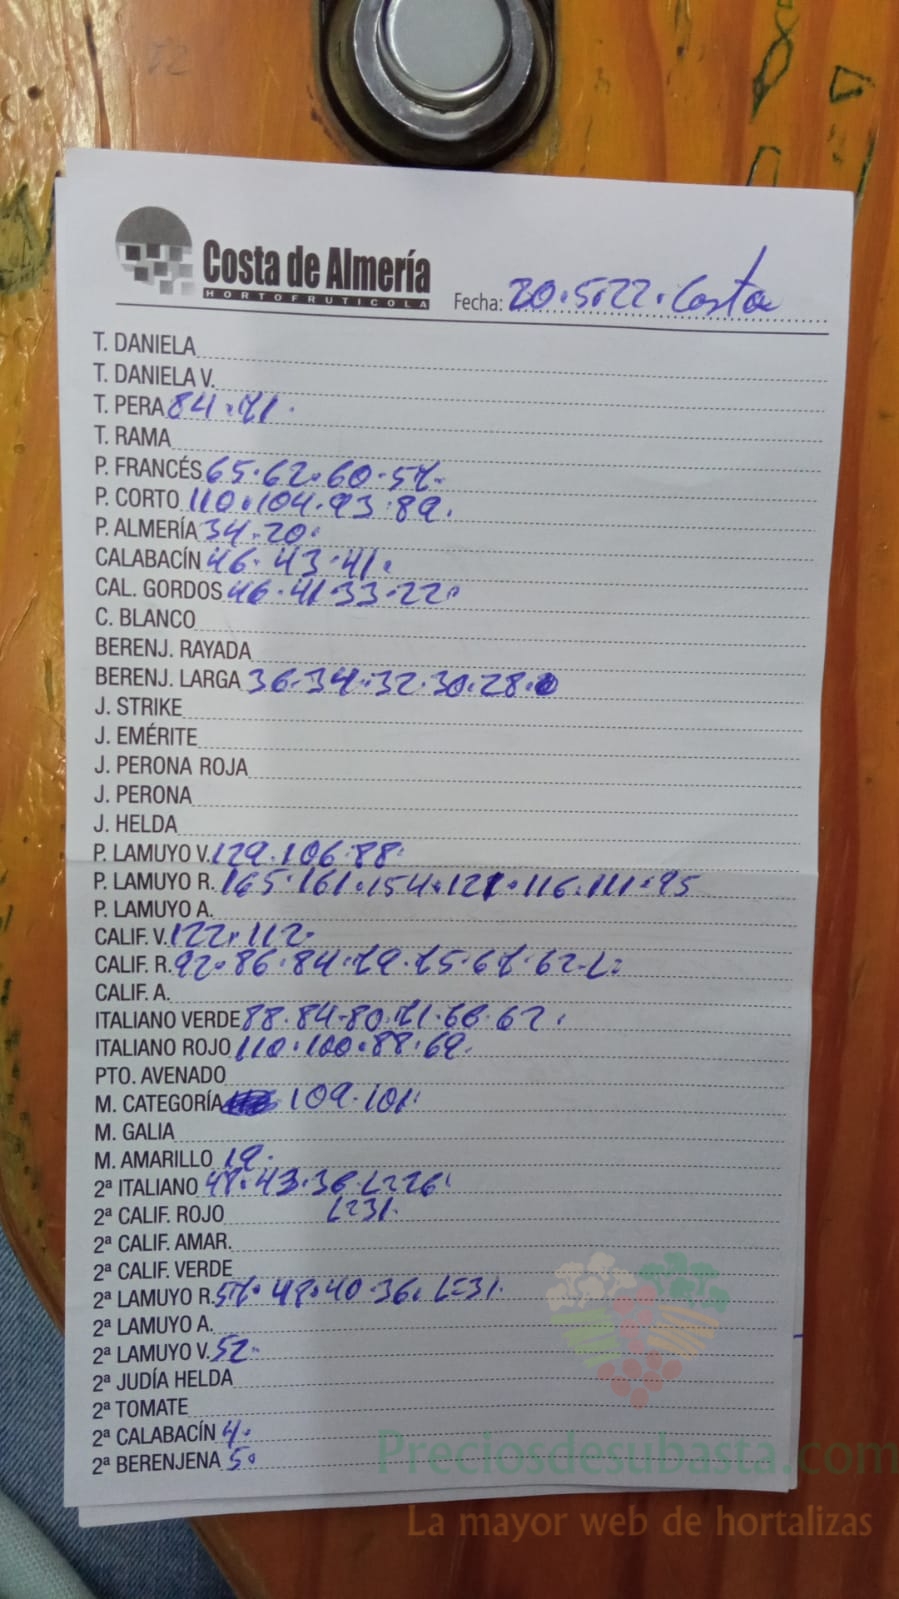 Costa de Almería
HORTOFRUTICOLA
Fecha: 20.5.22. Costa
T. DANIELA
T. DANIELA V.
T. PERA 84.71.
T. RAMA
P. FRANCÉS 65.62.60.57.
P. CORTO 110.104.93.89.
P. ALMERÍA 34.20.
CALABACÍN 46.43.41.
CAL. GORDOS 46.41.33.22.
C. BLANCO
BERENJ. RAYADA
BERENJ. LARGA 36.34.32.30.28.
J. STRIKE
J. EMÉRITE
J. PERONA ROJA
J. PERONA
J. HELDA
P. LAMUYO V. 129.106.88.
P. LAMUYO R. 165.161.154.121.116.111.95
P. LAMUYO A.
CALIF. V. 122.112.
CALIF. R. 92.86.84.79.75.67.62-L.
CALIF. A.
ITALIANO VERDE 88.84.80.71.66.62.
ITALIANO ROJO 110.100.88.69.
PTO. AVENADO
M. CATEGORÍA 109.101.
M. GALIA
M. AMARILLO 19.
2ª ITALIANO 48.43.36.L=26.
2ª CALIF. ROJO L=31.
2ª CALIF. AMAR.
2ª CALIF. VERDE
2ª LAMUYO R. 57.48.40.36.L=31.
2ª LAMUYO A.
2ª LAMUYO V. 52.
2ª JUDÍA HELDA
2ª TOMATE
2ª CALABACÍN 4.
2ª BERENJENA 5.
Preciosdesubasta.com
La mayor web de hortalizas